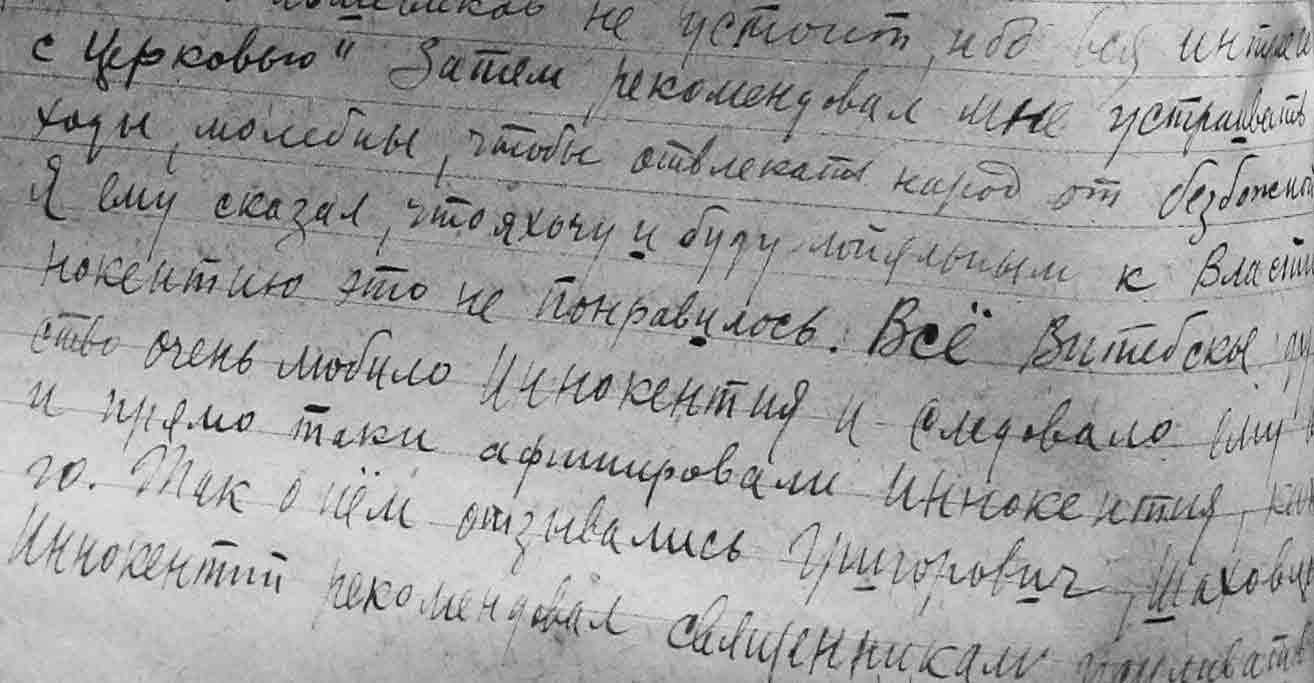 не устоит, ибо вся
с Церковью" Затем рекомендовал мне устраивать
ходы, молебны, чтобы отвлекать народ от безбожной
Я ему сказал, что я хочу и буду лойяльным к Власти
нокентию это не понравилось. Всё Витебское
ство очень любило Иннокентия и следовало ему
и прямо таки афишировали Иннокентия,
го. Так о нём отзывались Григорович,
Иннокентий рекомендовал священникам